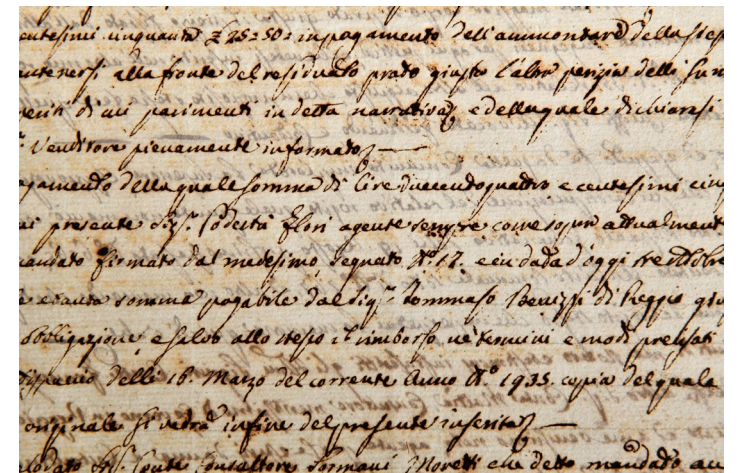 centesimi cinquanta £ 25:50: in pagamento dell'ammontare della siep
antenersi alla fronte del residuato prado giusto l'altra perizia delli Sun
periti di cui parimenti in detta narrativa, e della quale dichiarasi
Venditore pienamente informato
agamento della quale somma di Lire duecendoquattro e centesimi cinq
ui presente Sig.r Podestà Flori agente sempre come sopra attualment
andato firmato dal medesimo segnato N.o 17. e in dada d'oggi tre ottobre
somma pagabile dal Sig.r Tommaso Benizzi di Reggio giu
obbligazione, e salvo allo stesso il rimborso ne' termini e modi precisati
dispaccio delli 16. Marzo del corrente Anno N.o 1935. copia del quale
originale si vedrà infine del presente inserita
lodato Sig. Conte Consultore Sormani Moretti che detto mandado au